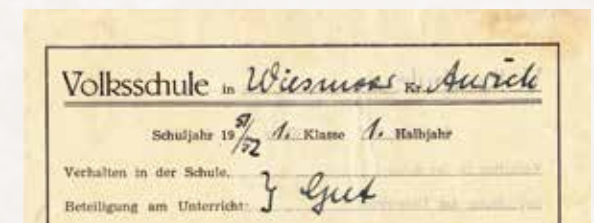 Volksschule in Wiesmoor Kr. Aurich
Schuljahr 19 51/52 1. Klasse 1. Halbjahr
Verhalten in der Schule,
Beteiligung am Unterricht: } Gut